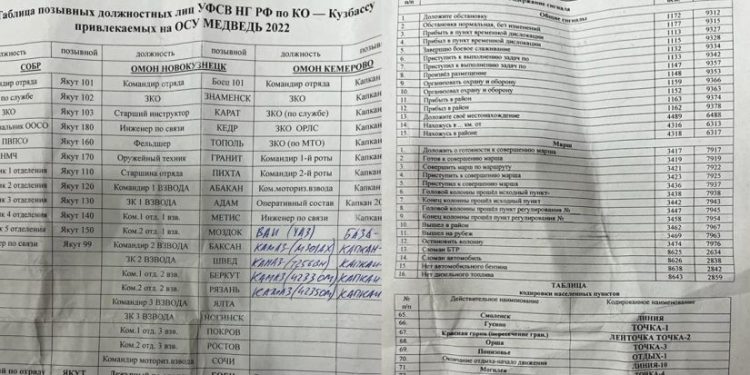 Таблица позывных должностных лиц УФСВ НГ РФ по КО — Кузбассу
привлекаемых на ОСУ МЕДВЕДЬ 2022
позывной должность позывной должность позывной
СОБР ОМОН НОВОКУЗНЕЦК ОМОН КЕМЕРОВО
отряда Якут 101 Командир отряда Босс 101 Командир отряда Капкан
по службе Якут 102 ЗКО ЗНАМЕНСК ЗКО Капкан
Якут 103 Старший инструктор КАРАТ ЗКО (по службе) Капкан
ООСО Якут 180 Инженер по связи КЕДР ЗКО ОРЛС Капкан
ПВПСО Якут 160 Фельдшер ТОПОЛЬ ЗКО (по МТО) Капкан
НМЧ Якут 170 Оружейный техник ГРАНИТ Командир 1-й роты Капкан
1 отделения Якут 110 Старшина отряда ПИХТА Командир 2-й роты Капкан
2 отделения Якут 120 Командир 1 ВЗВОДА АБАКАН Ком.моториз.взвода Капкан
3 отделения Якут 130 ЗК 1 ВЗВОДА АДАМ Оперативный состав Капкан
4 отделения Якут 140 Ком.1 отд. 1 взв. МЕТИС Инженер по связи Капкан
5 отделения Якут 150 Ком.2 отд. 1 взв. МОЗДОК ВАИ (УАЗ) БАЗА-
по связи Якут 99 Командир 2 ВЗВОДА БАКСАН КАМАЗ КАПКАН-
ЗК 2 ВЗВОДА ШВЕД КАМАЗ КАПКАН-
Ком.1 отд. 2 взв. БЕРКУТ КАМАЗ (4233ОМ) КАПКАН
Ком.2 отд. 2 взв. РЯЗАНЬ КАМАЗ (4235ОМ) КАПКАН
Командир 3 ВЗВОДА ЯЛТА
ЗК 3 ВЗВОДА НОГИНСК
Ком.1 отд. 3 взв. ПОКРОВ
Ком.2 отд. 3 взв. РОСТОВ
Командир моториз.взвода СОЧИ
ЯКУТ
п/п содержание сигнала
Общие сигналы
1. Доложите обстановку 1172 9312
2. Обстановка нормальная, без изменений 1115 9321
3. Прибыть в пункт временной дислокации 1117 9327
4. Прибыл в пункт временной дислокации 1128 9332
5. Завершаю боевое слаживание 1132 9334
6. Приступить к выполнению задач по 1133 9342
7. Приступил к выполнению задач по 1147 9357
8. Произвел размещение 1148 9353
9. Организовал охрану и оборону 1159 9366
10. Организовал охрану и оборону 1152 9365
11. Прибыть в район 1163 9374
12. Прибыл в район 1162 9378
13. Доложите своё местонахождение 4489 6488
14. Нахожусь в … км. от 4316 6313
15. Нахожусь в районе 4318 6317
Марш
1. Доложить о готовности к совершению марша 3417 7917
2. Готов к совершению марша 3419 7919
3. Совершить марш по маршруту 3421 7922
4. Приступить к совершению марша 3425 7923
5. Приступил к совершению марша 3436 7934
6. Головой колонны прошёл исходный пункт- 3437 7938
7. Конец колонны прошёл исходный пункт- 3442 7943
8. Головой колонны прошёл пункт регулирования № 3447 7945
9. Конец колонны прошёл пункт регулирования № 3458 7954
10. Вышел в район 3457 7959
11. Вышел на рубеж 3462 7967
12. Остановить колонну 3469 7963
13. Сломан БТР 3474 7976
14. Сломан автомобиль 8625 2634
15. Нет автомобильного бензина 8626 2838
16. Нет дизельного топлива 8638 2842
8643 2859
ТАБЛИЦА
кодировки населенных пунктов
№ п/п Действительное наименование Кодированное наименование
65. Смоленск ЛИНИЯ
66. Гусино ТОЧКА-1
67. Красная горка (пересечение гран.) ЛЕНТОЧКА ТОЧКА-2
68. Орша ТОЧКА-3
69. Понизовье ОТДЫХ-1
70. Окончание отдыха-начало движения ЛИНИЯ-10
71. Могилев ТОЧКА-4